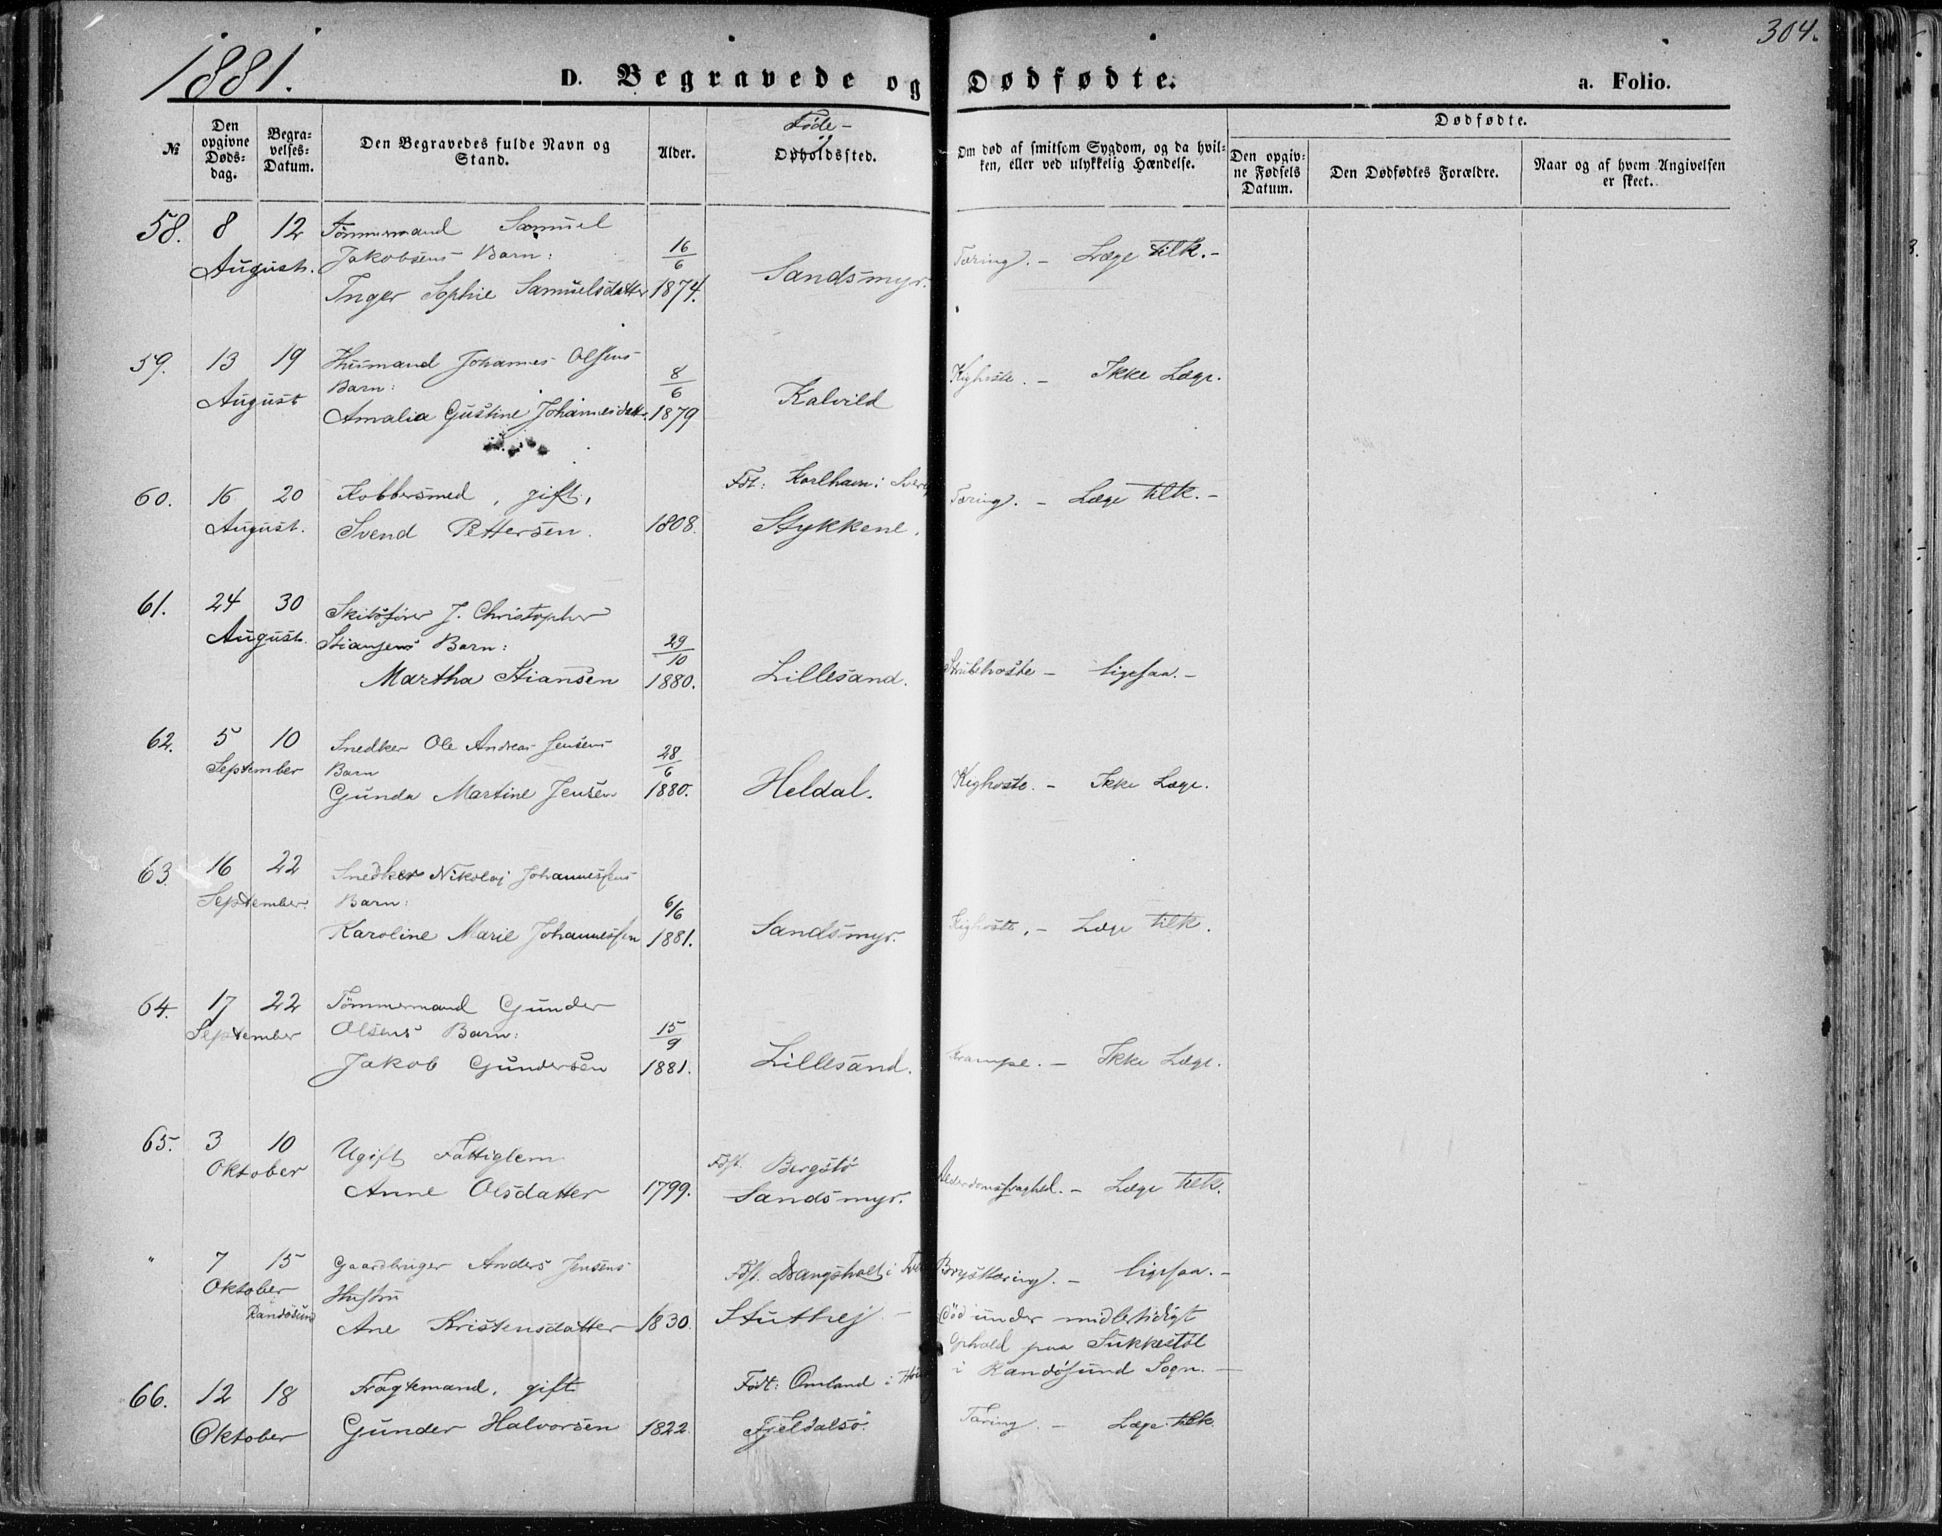 1881.
304.
D. Begravede og Dødfødte.
a. Folio.
№
Den opgivne Døds-dag.
Begra-velses-Datum.
Den Begravedes fulde Navn og Stand.
Alder.
Føde- og
Opholdssted.
Om død af smitsom Sygdom, og da hvil-ken, eller ved ulykkelig Hændelse.
Dødfødte.
Den opgiv-ne Fødsels Datum.
Den Dødfødtes Forældre.
Naar og af hvem Angivelsen er skeet.
58. 8 12 Tømmermand Samuel
August. Jakobsens Barn: 16/6 Tæring. - Læge tilk. -
Inger Sophie Samuelsdatter 1874. Sandsmyr.
59. 13 19 Huusmand Johannes Olsens
Barn: 8/6 Kighoste. - Ikke Læge.
August Amalia Gustine Johannesdatt. 1879 Kalvild
60. 16 20 Kobbersmed, gift, Fdt: Karlhavn i Tæring. - Læge tilk. -
August. Svend Pettersen. 1808. Stykkene.
61. 24 30 Skibsfører J. Christopher
August. Stiansens Barn: 29/10
Martha Stiansen 1880. Lillesand. Strubehoste - ligesaa. -
62. 5 10 Snedker Ole Andreas Jensens
September Barn 28/6
Gunda Martine Jensen 1880. Heldal. Kighoste. - Ikke Læge.
63. 16 22 Snedker Nikolaj Johannessens
September. Barn: 6/6
Karoline Marie Johannessen 1881. Sandsmyr. Kighoste. - Læge tilk.
64. 17 22 Tømmermand Gunder
September Olsens Barn: 15/9
Jakob Gundersen 1881. Lillesand. Krampe. - Ikke Læge.
65. 3 10 Ugift Fattiglem Fdt. Bergstø
Oktober Anne Olsdatter 1799. Sandsmyr. Alderdomssvaghed. - Læge tilk.
" 7 15 Gaardbruger Anders Jensens Fdt. Drangsholt i Brysttæring. - ligesaa. -
Oktober Hustru
Randøsund Ane Kristensdatter 1830. Stuthej - Død under midlertidigt
Ophold paa Sukkestøl
i Randøsund Sogn. -
66. 12 18 Fragtemand, gift Født: Omland i
Oktober Gunder Halvorsen 1822. Fjeldalsø. Tæring. - Læge tilk.